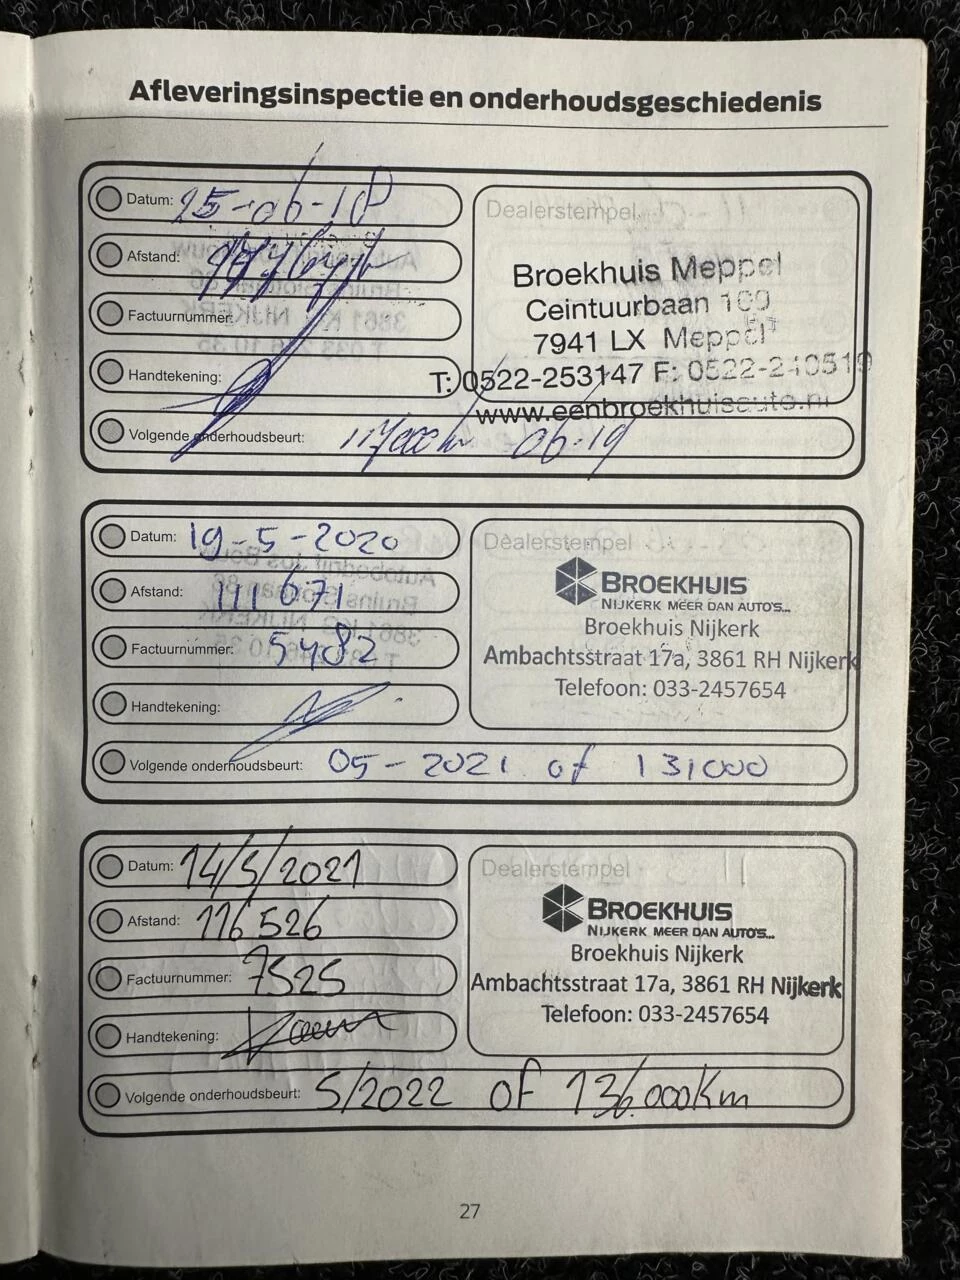 Afleveringsinspectie en onderhoudsgeschiedenis
Datum: 25-06-18
Afstand:
Factuurnummer:
Handtekening:
Dealerstempel
Broekhuis Meppel
Ceintuurbaan 109
7941 LX Meppel
T: 0522-253147 F: 0522-240519
www.eenbroekhuisauto.nl
Volgende onderhoudsbeurt: 06-19
Datum: 19-5-2020
Afstand: 111 671
Factuurnummer: 5482
Handtekening:
Dealerstempel
BROEKHUIS
NIJKERK MEER DAN AUTO'S...
Broekhuis Nijkerk
Ambachtsstraat 17a, 3861 RH Nijkerk
Telefoon: 033-2457654
Volgende onderhoudsbeurt: 05-2021 of 131000
Datum: 14/5/2021
Afstand: 116 526
Factuurnummer: 7525
Handtekening:
Dealerstempel
BROEKHUIS
NIJKERK MEER DAN AUTO'S...
Broekhuis Nijkerk
Ambachtsstraat 17a, 3861 RH Nijkerk
Telefoon: 033-2457654
Volgende onderhoudsbeurt: 5/2022 of 136.000Km
27